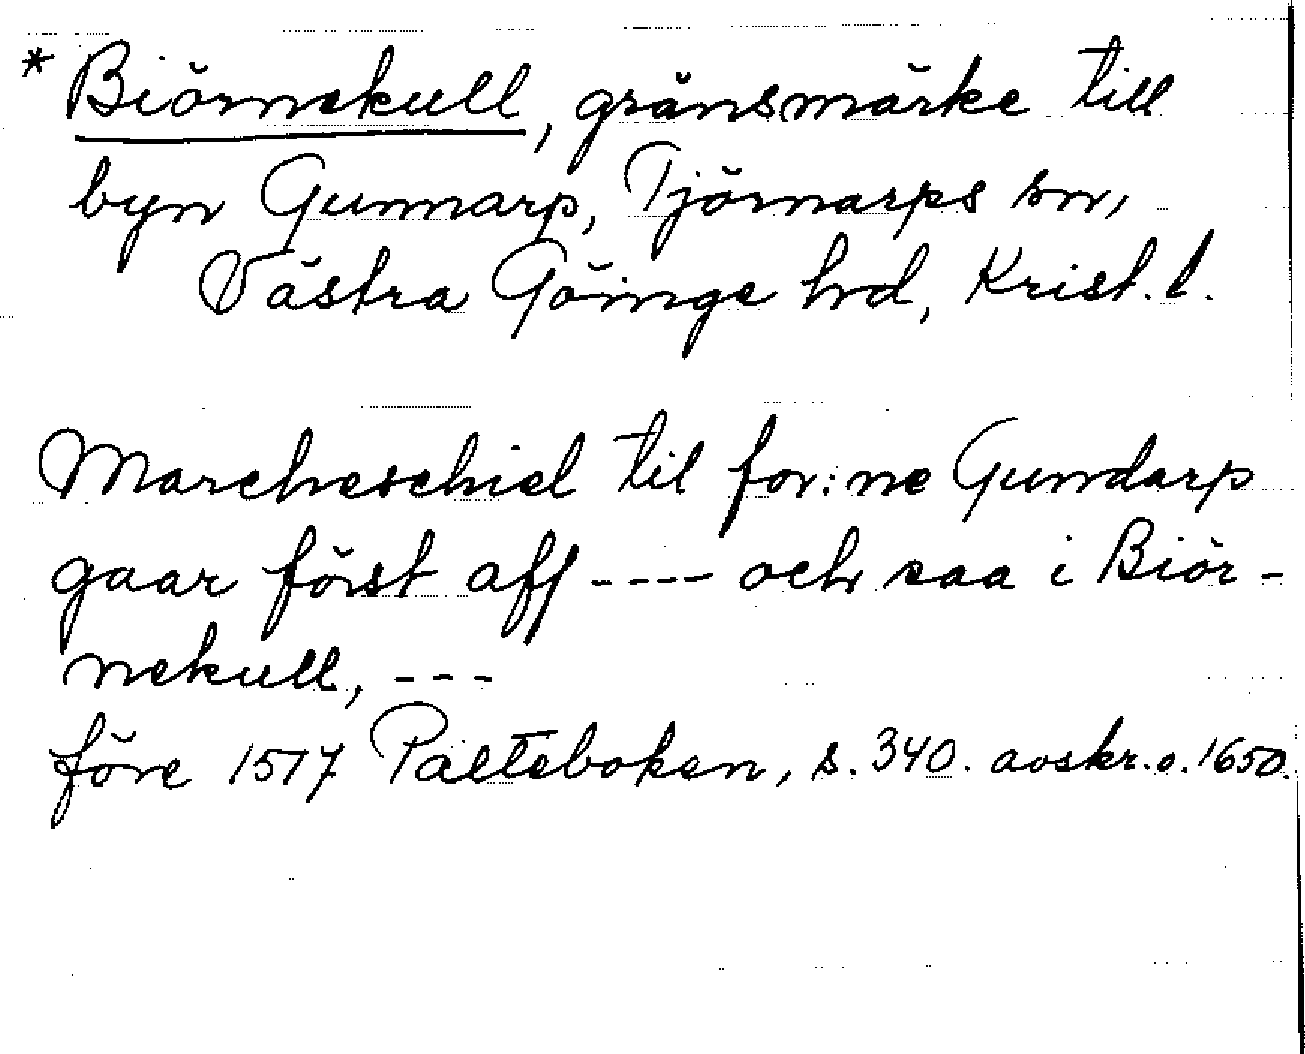 * Biörnekull, gränsmärke till
byn Gunnarp, Tjörnarps sn,
Västra Göinge hrd, Krist. l.
Marcheschiel til for:ne Gundarp
gaar först aff ---- och saa i Biör-
nekull, ---
före 1517 Palteboken, s. 340. avskr. o. 1650.